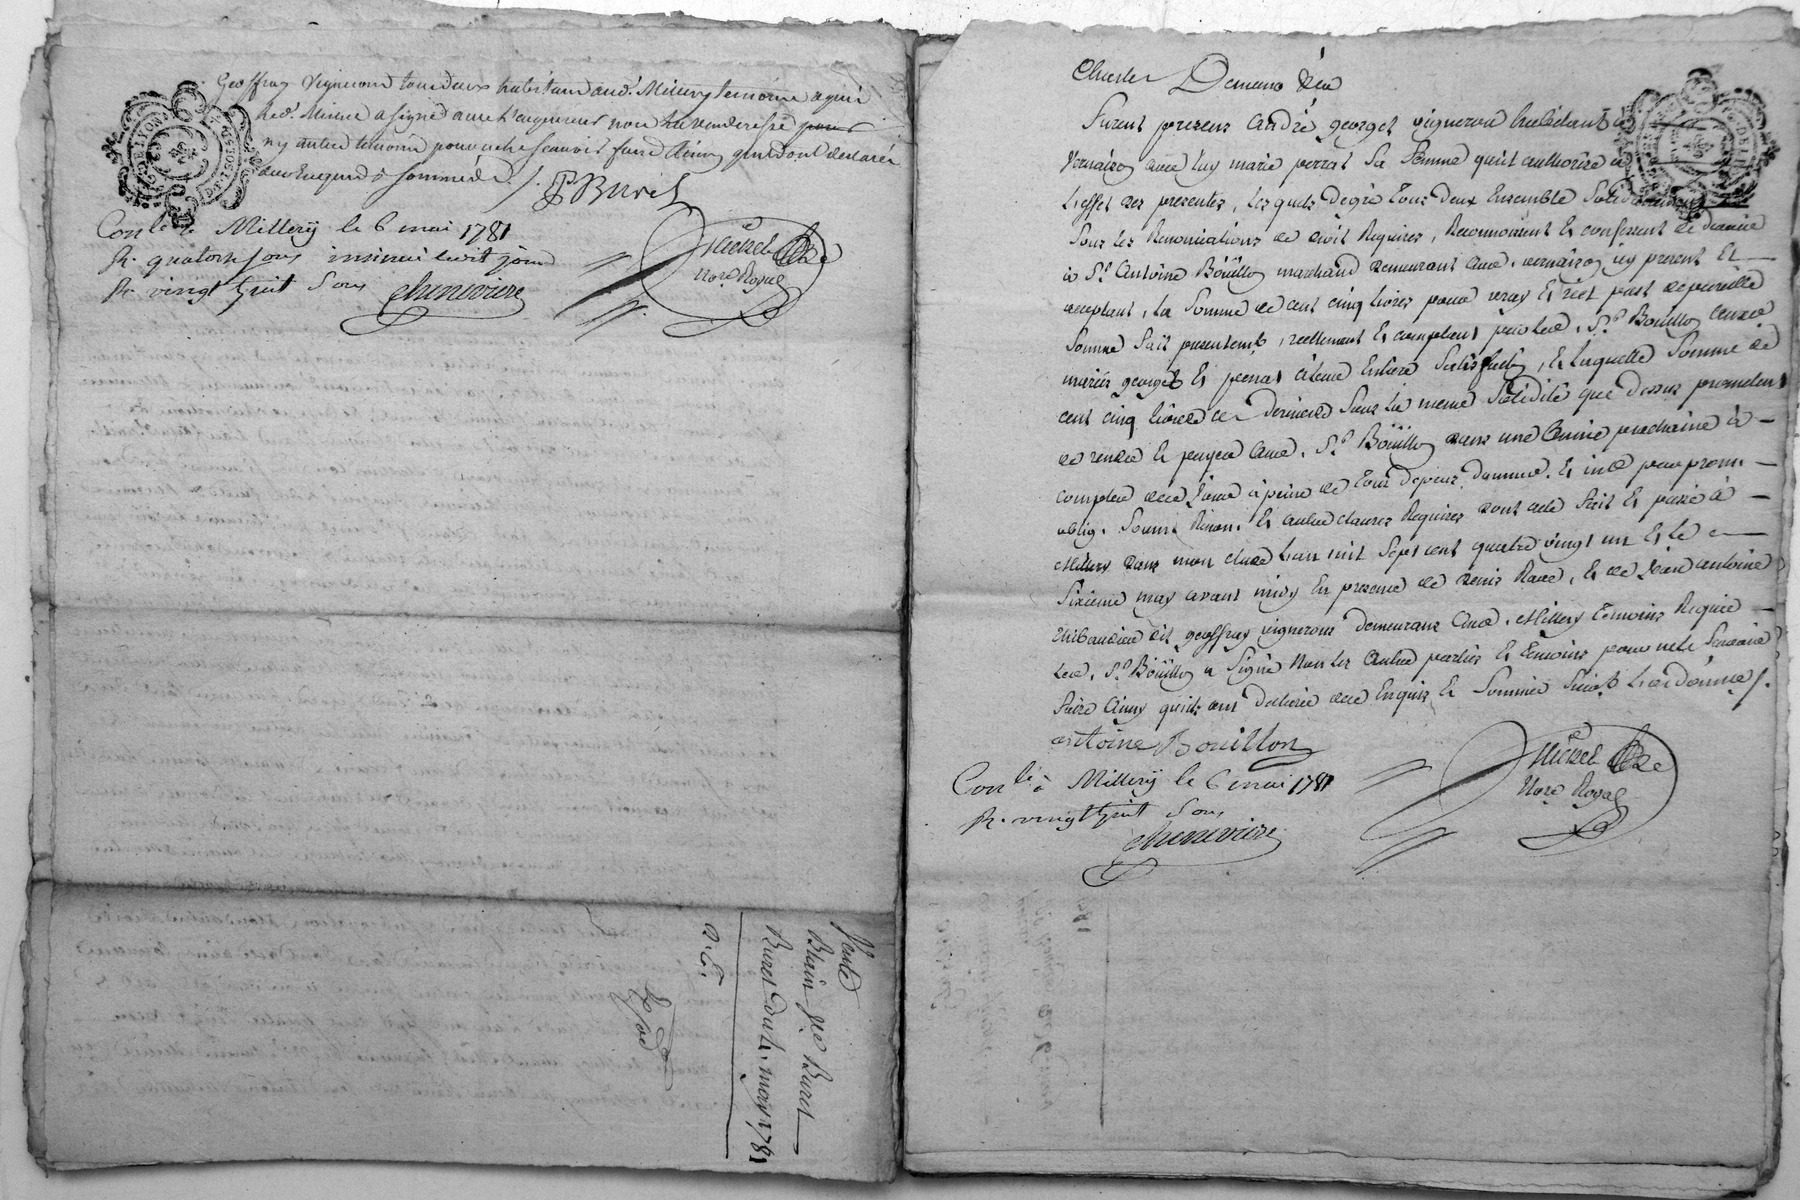 Geoffray Vigneron tous deux habitans aud. Millery temoins requis
led. Mirene a signé avec l'acquereur non la venderesse
ny autres temoins pour ne le scavoir faire dûmy qui l'ont declaré
de ce Enquis & sommés ./.
P Buret
Con.lé a Millery le 6 mai 1781
R. quatorze sous insinué huit jour
R. vingt huit Sous
cheneviere
Nore. Royal
GN. DE LYON
D. F. 1 SOLS 4 D.
Vente
Blain gee Buret
Buret du 6. may 1781
Par devant
Furent presens andré georget vigneron habitant a
Vernaison avec luy marie perrat sa femme quil authorise a
L'effet des presentes, Lesquels degré tous deux Ensemble Solidairement
sous les Renonciations de droit Requises, Reconnoissent Et confessent de devoir
a Sr. Antoine Boüillon marchand demeurant aud. vernaison icy present Et
acceptant, La somme de cent cinq livres pour vray Et réel prest de pareille
somme fait presentemt, reellement Et comptant par led. Sr. Boüillon auxd.
mariés georget Et perrat à leur Entiere Satisfaction, Et laquelle Somme de
cent cinq livres ces derniers sous la meme Solidité que dessus promettent
de rendre Et payer aud. Sr. Boüillon dans une année prochaine à
compter de ce jour à peine de tous depens, dommes. Et int. par prom.
oblig. Soumis. Renon. Et autres clauses Requises dont acte fait Et passé à
Millery dans mon etude L'an mil Sept cent quatre vingt un Et le
Sixieme may avant midy En presence de denis Race, Et de Jean antoine
thibaudier dit geoffray vignerons demeurans aud. Millery temoins Requis
led. Sr. Boüillon a signé non les autres parties Et temoins pour ne le Scavoir
faire Ainsy quils ont declaré de ce Enquis Et Sommés Suivt. L'ordonnce /.
antoine Bouillon
Con.lé à Millery le 6 mai 1781
R. vingt huit Sous
cheneviere
Nore. Royal